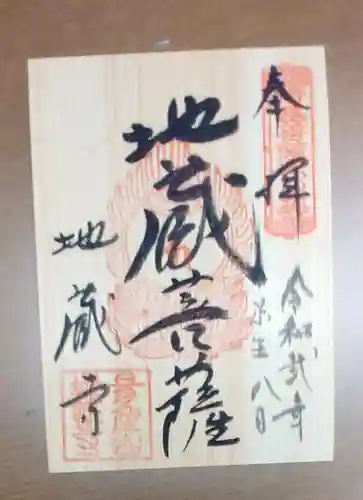 奉拝
令和弐年
八日
地蔵菩薩
地蔵寺